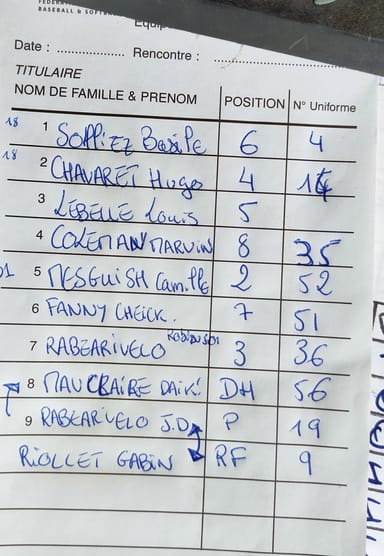 BASEBALL & SOF
Equip
Date : .................. Rencontre : ..................
TITULAIRE
NOM DE FAMILLE & PRENOM POSITION N° Uniforme
18 1 SOPPIEZ Basile 6 4
18 2 CHAVARET Hugo 4 14
3 LEBELLE Louis 5
4 COLEMAN MARVIN 8 35
01 5 MESGUISH Camille 2 52
6 FANNY CHEICK. 7 51
7 RABEARIVELO Robinson 3 36
8 MAUCLAIRE DAIKI DH 56
9 RABEARIVELO J.D P 19
RIOLLET GABIN RF 9